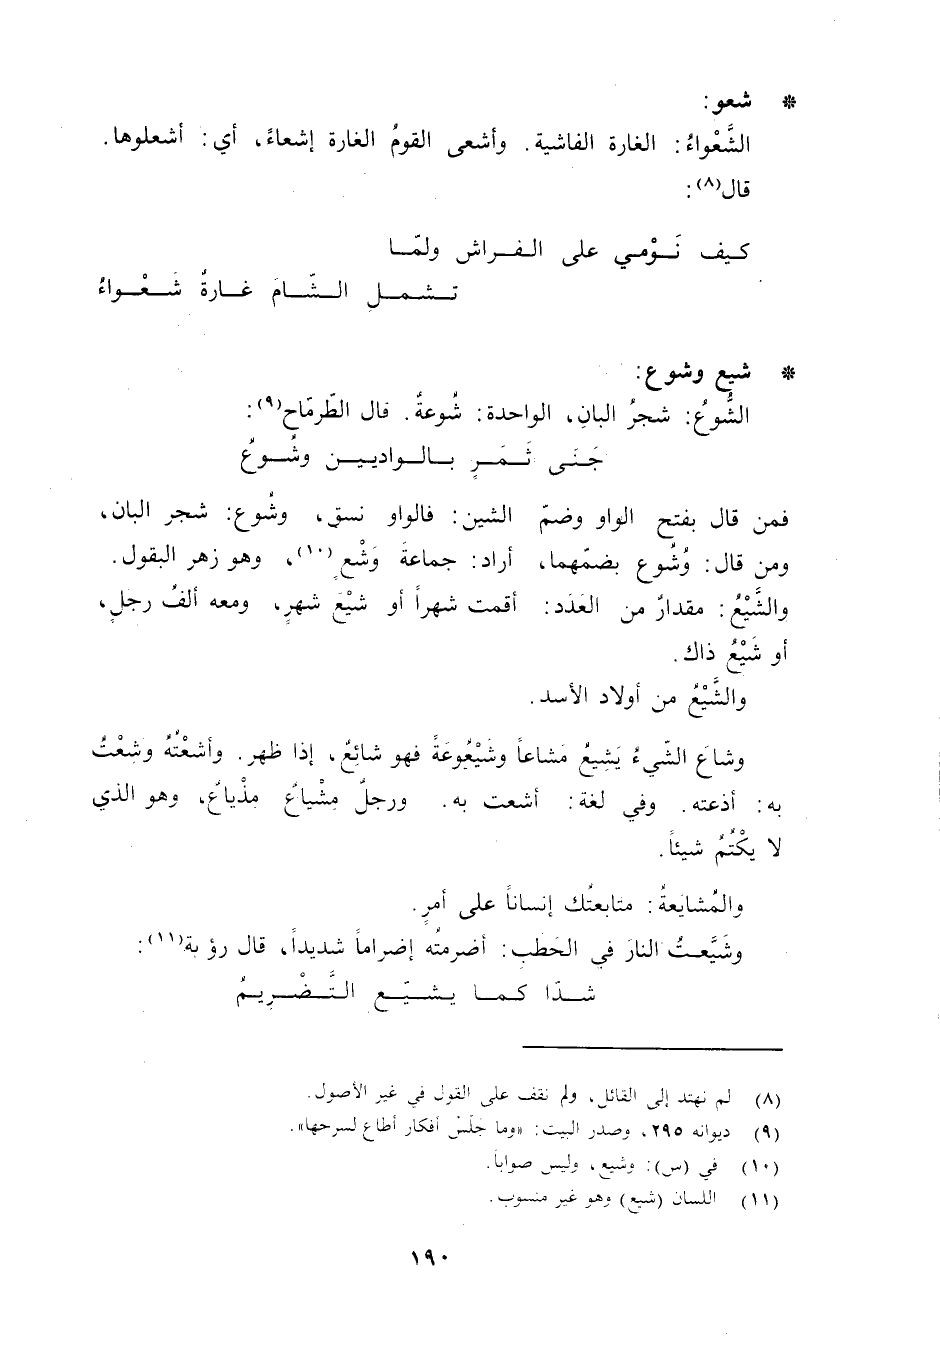 * شعو:
الشَّعْواءُ: الغارة الفاشية. وأشعى القومُ الغارة إشعاءً، أي: أشعلوها.
قال(٨):
كيف نَوْمي على الفراش ولمّا
تشمل الشّامَ غارةٌ شَعْواءُ
* شيع وشوع:
الشُّوعُ: شجرُ البانِ، الواحدة: شُوعةٌ. قال الطّرمّاح(٩):
جَنَى ثَمَرٍ بالواديين وشُوعُ
فمن قال بفتح الواو وضمّ الشين: فالواو نسق، وشُوع: شجر البان،
ومن قال: وُشُوع بضمّهما، أراد: جماعةَ وَشْعٍ(١٠)، وهو زهر البقول.
والشَّيْعُ: مقدارٌ من العَدَد: أقمت شهراً أو شَيْعَ شهرٍ، ومعه ألفُ رجلٍ،
أو شَيْعُ ذاك.
والشَّيْعُ من أولاد الأسد.
وشاعَ الشّيءُ يَشِيعُ مَشاعاً وشَيْعُوعَةً فهو شائعٌ، إذا ظهر. وأشَعْتُهُ وشِعْتُ
به: أذعته. وفي لغة: أشعت به. ورجلٌ مِشْياعٌ مِذْياعٌ، وهو الذي
لا يكْتُمُ شيئاً.
والمُشايَعةُ: متابعتُك إنساناً على أمرٍ.
وشَيَّعتُ النارَ في الحَطَب: أضرمتُه إضراماً شديداً، قال رؤبة(١١):
شدّا كما يشيّع التَّضْريمُ
(٨) لم نهتد إلى القائل، ولم نقف على القول في غير الأصول.
(٩) ديوانه ٢٩٥، وصدر البيت: «وما جَلْسُ أفكار أطاع لسرحها».
(١٠) في (س): وشيع، وليس صواباً.
(١١) اللسان (شيع) وهو غير منسوب.
١٩٠